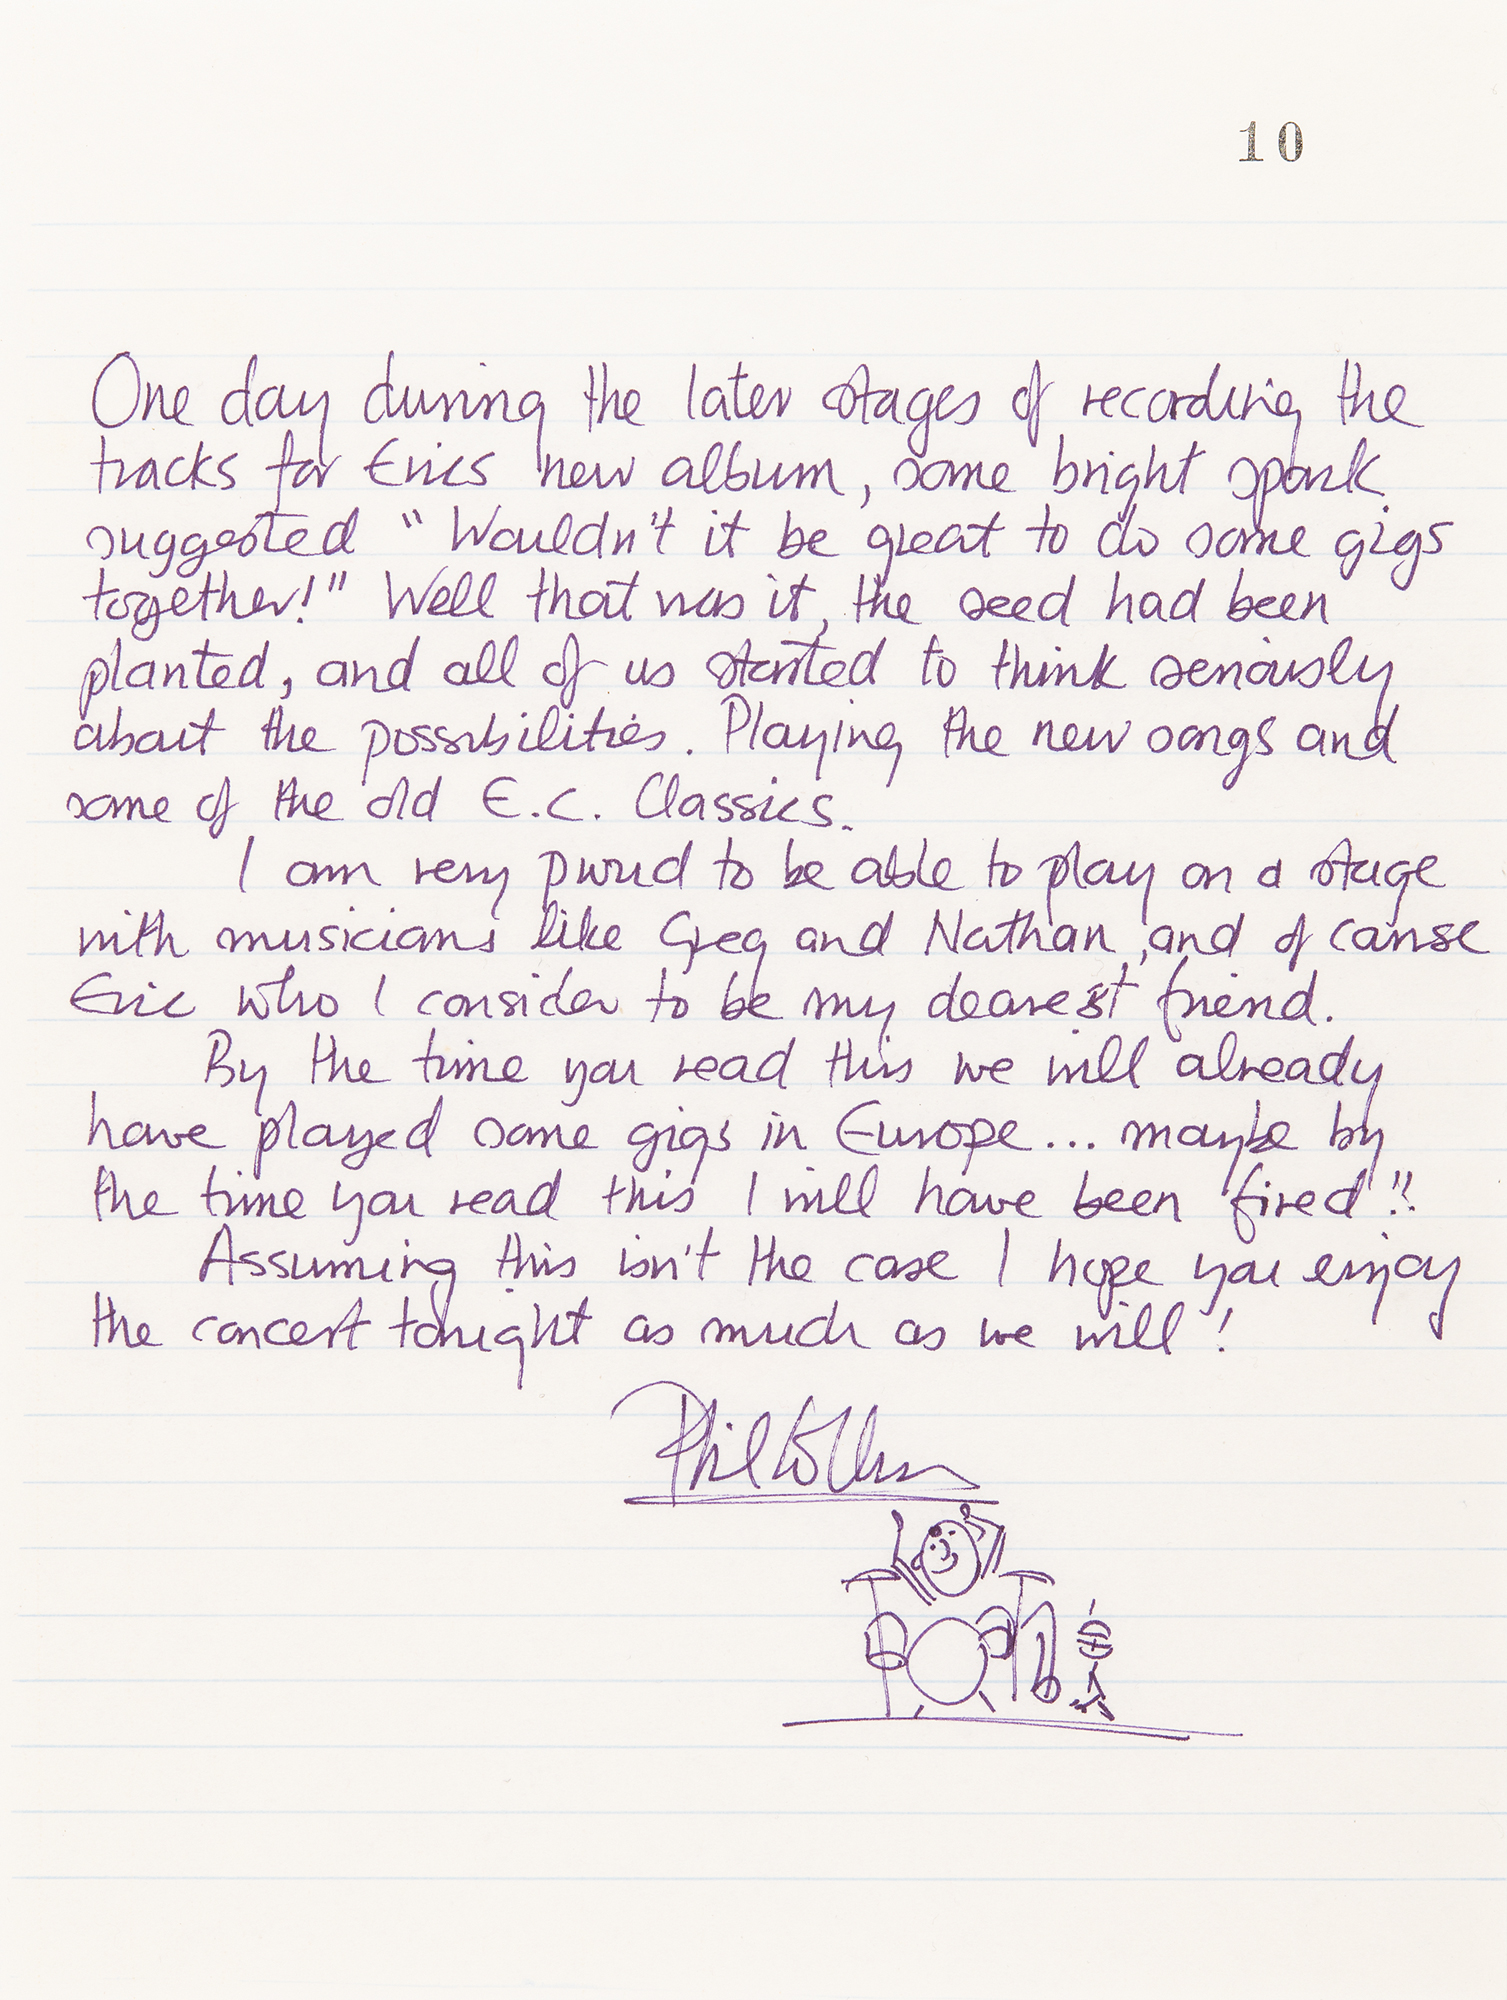 10
One day during the later stages of recording the
tracks for Erics new album, some bright spark
suggested "Wouldn't it be great to do some gigs
together!" Well that was it, the seed had been
planted, and all of us started to think seriously
about the possibilities. Playing the new songs and
some of the old E.C. Classics.
I am very proud to be able to play on a stage
with musicians like Greg and Nathan, and of course
Eric who I consider to be my dearest friend.
By the time you read this we will already
have played some gigs in Europe... maybe by
the time you read this I will have been fired"!
Assuming this isn't the case I hope you enjoy
the concert tonight as much as we will!
Phil Collins